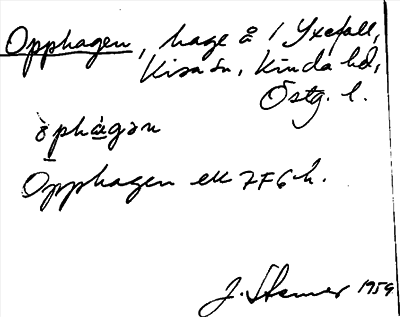 Opphagen, hage å 1 Yxefall,
Kisa sn, Kinda hd,
Östg. l.
òphàgən
Opphagen ek 7F6h.
J. 1959